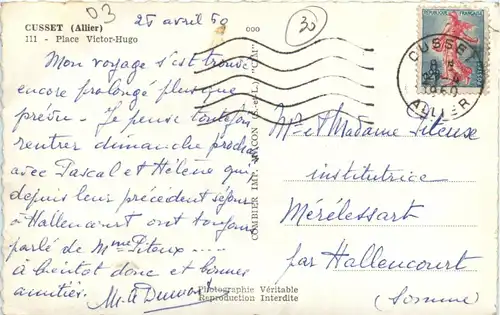 CUSSET (Allier)
111 - Place Victor-Hugo
03
25 avril 60
30
Mon voyage s'est trouvé
encore prolongé plus que
prévu - Je pense toutefois
rentrer dimanche prochain
avec Pascal et Hélène qui,
depuis leur précédent séjour
à Hallencourt ont toujours
parlé de Mme Piteux ....
à bientôt donc et bonnes
amitiés.
COMBIER IMP. MACON (S.-et-L.) "CIM"
REPUBLIQUE FRANCAISE
POSTES
CUSSET
1960
ALLIER
Mr et Madame Piteux
institutrice
Mérélessart
par Hallencourt
(Somme)
Photographie Véritable
Reproduction Interdite